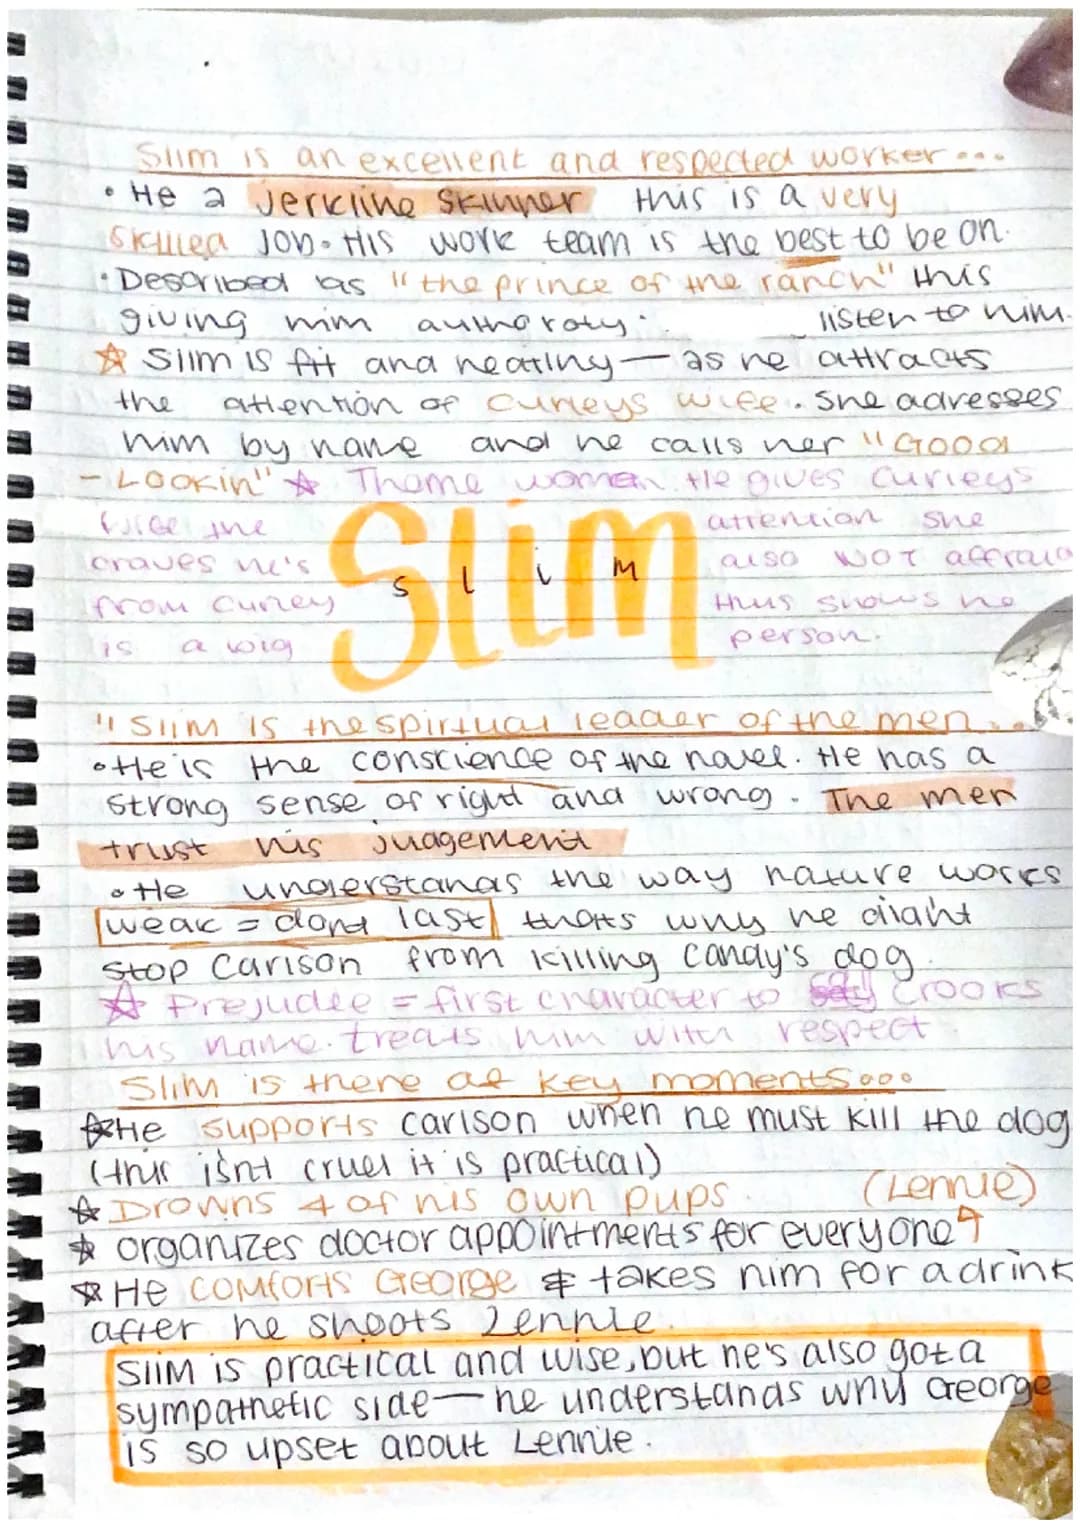 Slim is an excellent and respected worker...
• He a Jerkline Skinner this is a very
skilled job. His work team is the best to be on.
• Described as "the prince of the ranch" this
giving him authoroty. listen to him.
☆ Slim is fit and healthy — as he attracts
the attention of Curleys wife. She adresses
him by name and he calls her "Good
- Lookin" ☆ Theme women. He gives Curley's
wife the attention she
craves he's also NOT affraid
from Curley this shows he
is a big person.
Slim
S l i M
"Slim is the spirtual leader of the men...
• He is the conscience of the novel. He has a
strong sense of right and wrong. The men
trust his judgement
• He understands the way nature works
weak = dont last thats why he didnt
stop Carlson from killing Candy's dog.
☆ Prejudee = first character to Crooks
his name. treats him with respect
Slim is there at key moments...
☆ He supports Carlson when he must kill the dog
(this isnt cruel it is practical)
☆ Drowns 4 of his own pups. (Lennie)
☆ organizes doctor appointments for everyone
☆ He comforts George & takes him for a drink
after he shoots Lennie.
SliM is practical and wise, but he's also got a
sympathetic side — he understands why George
is so upset about Lennie.